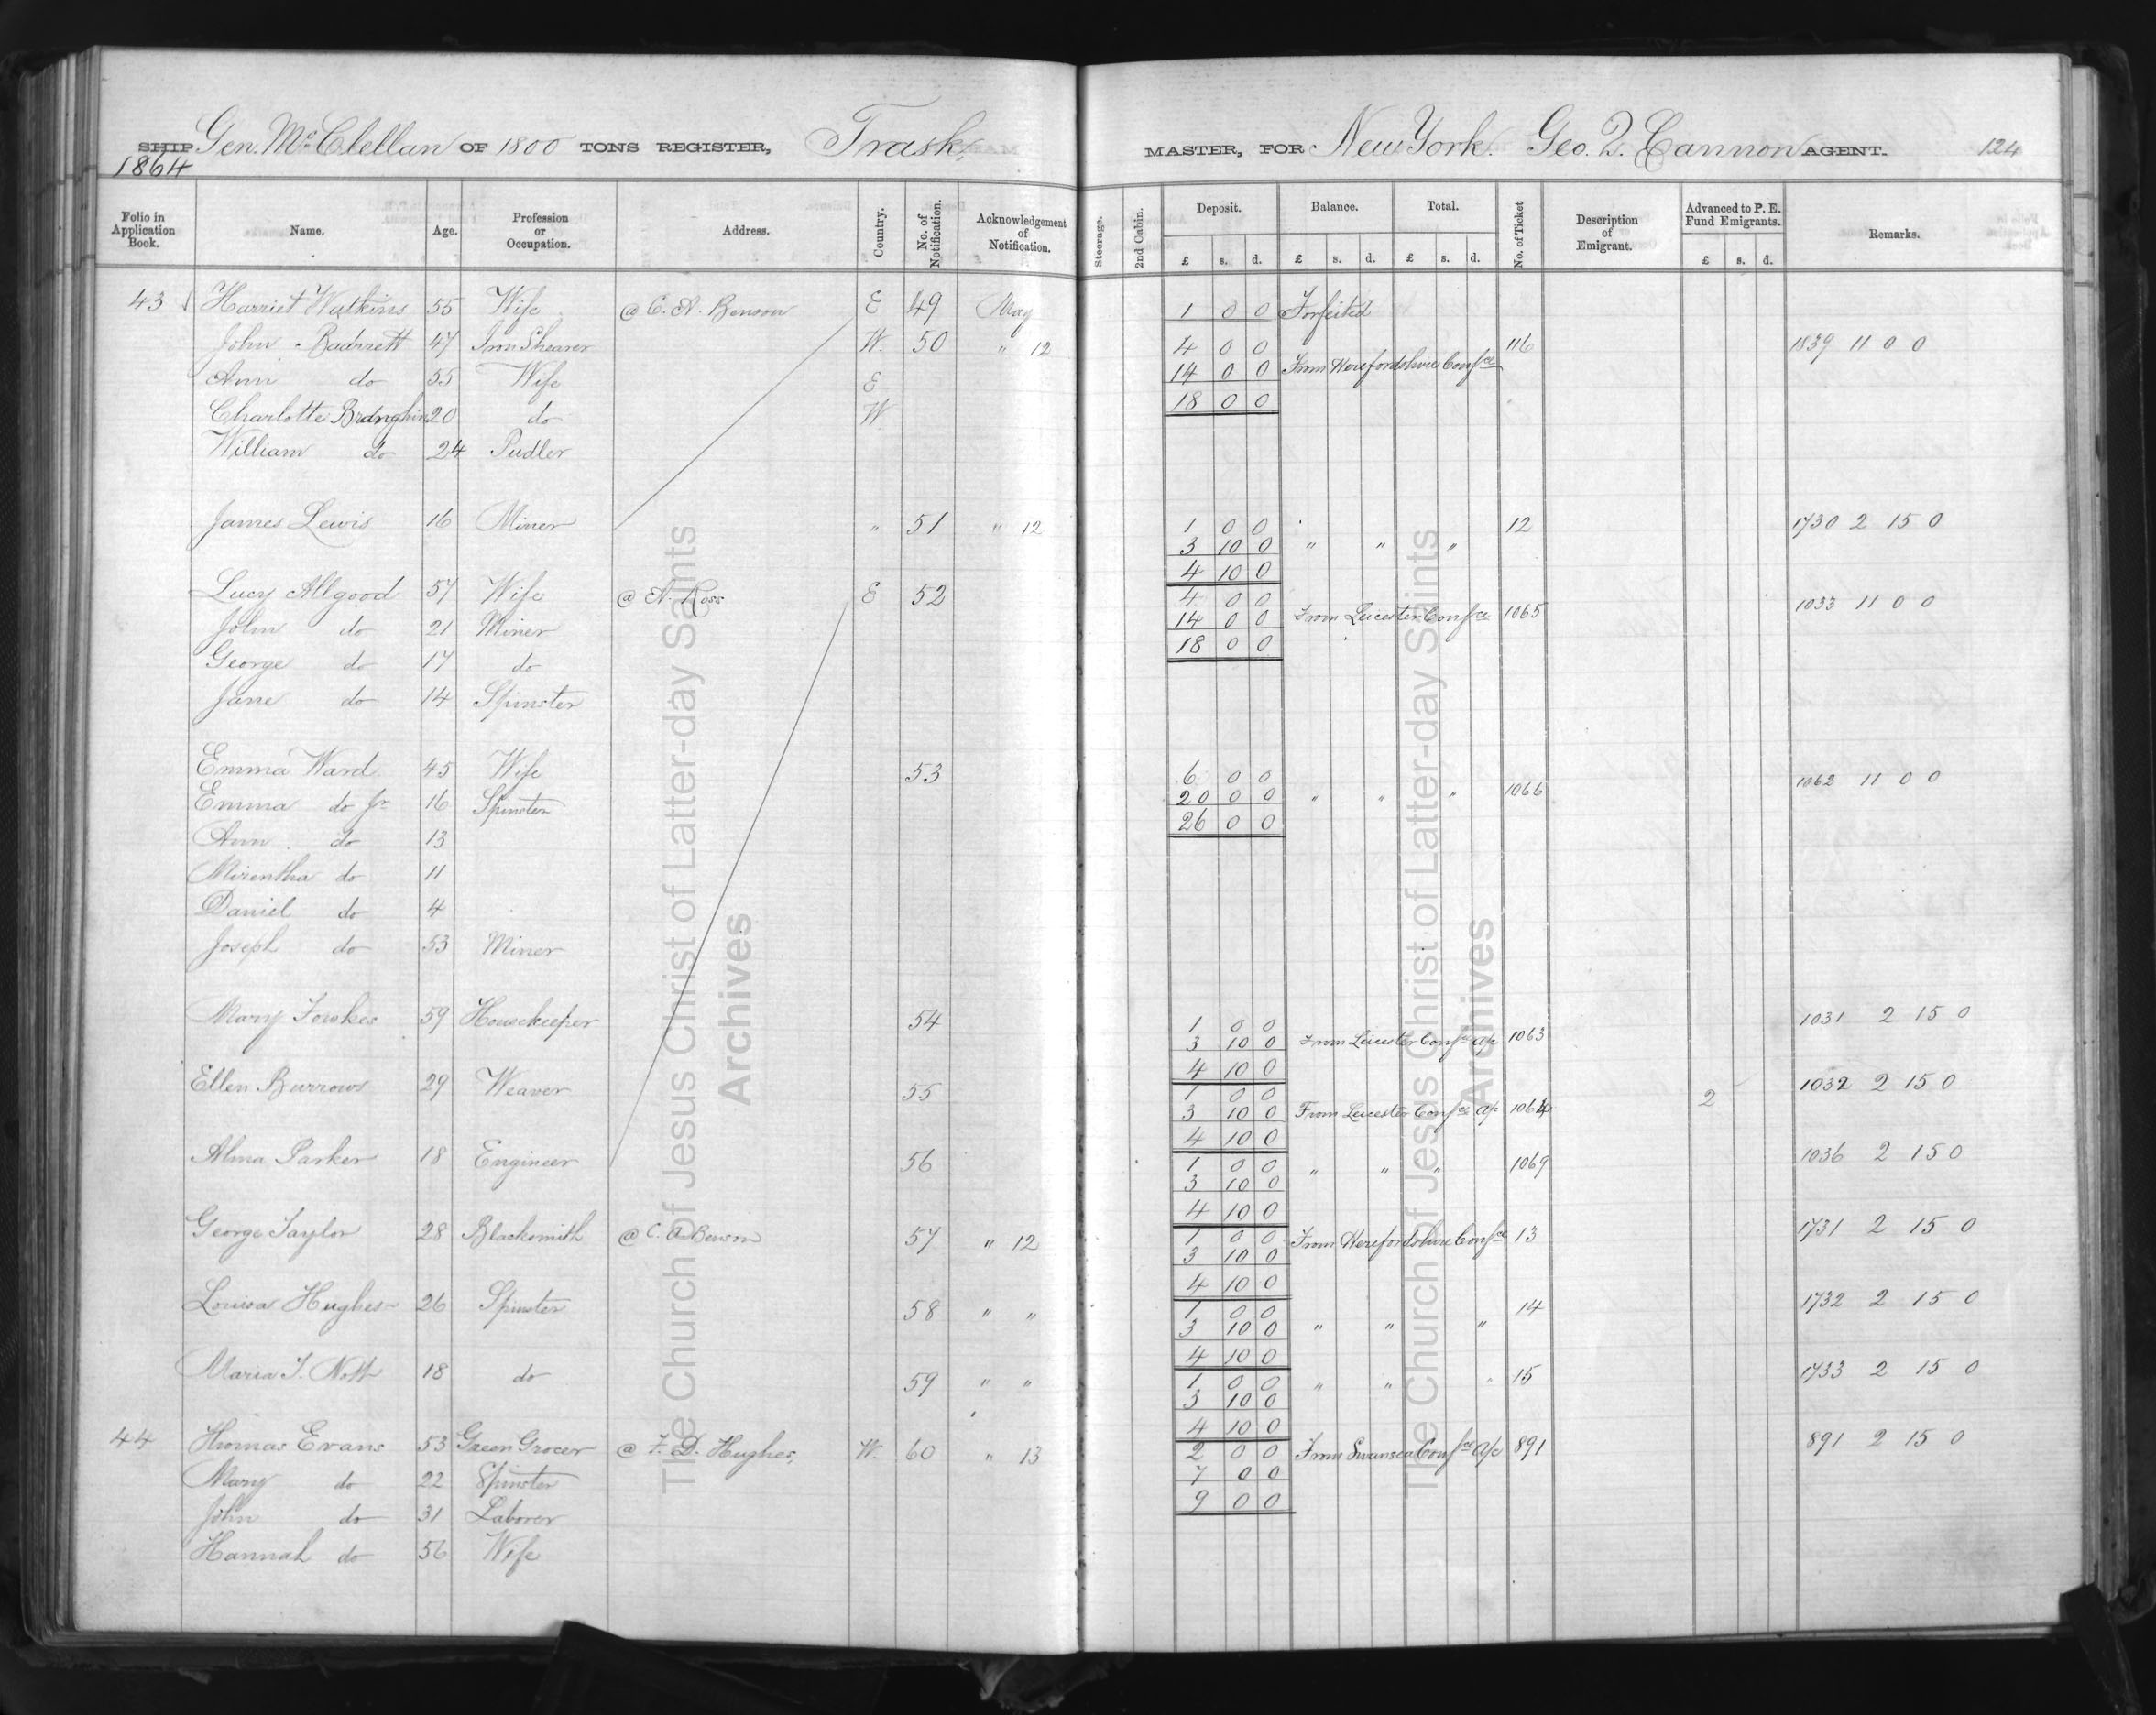 SHIP Gen. McClellan OF 1800 TONS REGISTER, Trask, MASTER, FOR New York. Geo. Q. Cannon AGENT. 124
1864
Folio in Application Book. Name. Age. Profession or Occupation. Address. Country. No. of Notification. Acknowledgement of Notification. Steerage. 2nd Cabin. Deposit. £ s. d. Balance. £ s. d. Total. £ s. d. No. of Ticket Description of Emigrant. Advanced to P. E. Fund Emigrants. £ s. d. Remarks.
43 Harriet Watkins 55 Wife @ C. A. Benson E 49 May 1 0 0 Forfeited
John Badrett 47 Iron Shearer W. 50 " 12 4 0 0 116 1839 11 0 0
Ann do 55 Wife E 14 0 0 From Herefordshire Confce
Charlotte 20 do W. 18 0 0
William do 24 Pudler
James Lewis 16 Miner " 51 " 12 1 0 0 12 1730 2 15 0
3 10 0 " " "
4 10 0
Lucy Allgood 57 Wife @ N. Ross E 52 4 0 0 1033 11 0 0
John do 21 Miner 14 0 0 From Leicester Confce 1065
George do 17 do 18 0 0
Jane do 14 Spinster
Emma Ward 45 Wife 53 6 0 0 1062 11 0 0
Emma do Jr 16 Spinster 20 0 0 " " " 1066
Ann do 13 26 0 0
Mirentha do 11
Daniel do 4
Joseph do 53 Miner
Mary Fowkes 59 Housekeeper 54 1 0 0 1031 2 15 0
3 10 0 From Leicester Confce a/c 1063
4 10 0
Ellen Burrows 29 Weaver 55 1 0 0 1032 2 15 0
3 10 0 From Leicester Confce a/c 1064 2
4 10 0
Alma Parker 18 Engineer 56 1 0 0 " " " 1069 1036 2 15 0
3 10 0
4 10 0
George Taylor 28 Blacksmith @ C. A. Benson 57 " 12 1 0 0 From Herefordshire Confce 13 1731 2 15 0
3 10 0
4 10 0
Louisa Hughes 26 Spinster 58 " " 1 0 0 14 1732 2 15 0
3 10 0 " " "
4 10 0
Maria J. Nott 18 do 59 " " 1 0 0 " " " 15 1733 2 15 0
3 10 0
4 10 0
44 Thomas Evans 53 Green Grocer @ F. D. Hughes, W. 60 " 13 2 0 0 From Swansea Confce a/c 891 891 2 15 0
Mary do 22 Spinster 7 0 0
John do 31 Laborer 9 0 0
Hannah do 56 Wife
The Church of Jesus Christ of Latter-day Saints
Archives
The Church of Jesus Christ of Latter-day Saints
Archives